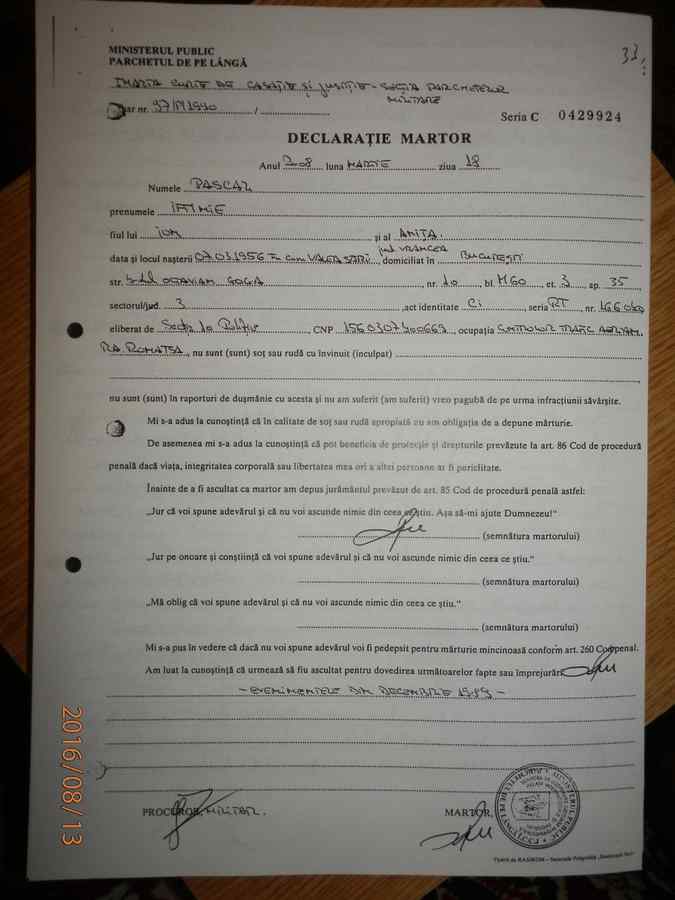 33.
MINISTERUL PUBLIC
PARCHETUL DE PE LÂNGĂ
ÎNALTA CURTE DE CASAȚIE ȘI JUSTIȚIE - SECȚIA PARCHETELOR
MILITARE
ar nr. 97/P/1990 /
Seria C 0429924
DECLARAȚIE MARTOR
Anul 2008 luna MARTIE ziua 18
Numele PASCAL
prenumele IFTIMIE
fiul lui ION și al ANIȚA.
jud VRANCEA
data și locul nașterii 07.03.1956 în com VALEA SĂRII, domiciliat în BUCUREȘTI
str. OCTAVIAN GOGA, nr. 10, bl. M60, et. 3, ap. 35
sectorul/jud. 3, act identitate Ci, seria RT, nr.
eliberat de Secția 10 Poliție, CNP, ocupația CONTROLOR TRAFIC AERIAN
RA. ROMATSA, nu sunt (sunt) soț sau rudă cu învinuit (inculpat)
nu sunt (sunt) în raporturi de dușmănie cu acesta și nu am suferit (am suferit) vreo pagubă de pe urma infracțiunii săvârșite.
Mi s-a adus la cunoștință că în calitate de soț sau rudă apropiată nu am obligația de a depune mărturie.
De asemenea mi s-a adus la cunoștință că pot beneficia de protecție și drepturile prevăzute la art. 86 Cod de procedură
penală dacă viața, integritatea corporală sau libertatea mea ori a altei persoane ar fi periclitate.
Înainte de a fi ascultat ca martor am depus jurământul prevăzut de art. 85 Cod de procedură penală astfel:
„Jur că voi spune adevărul și că nu voi ascunde nimic din ceea ce știu. Așa să-mi ajute Dumnezeu!“
(semnătura martorului)
„Jur pe onoare și conștiință că voi spune adevărul și că nu voi ascunde nimic din ceea ce știu.“
(semnătura martorului)
„Mă oblig că voi spune adevărul și că nu voi ascunde nimic din ceea ce știu.“
(semnătura martorului)
Mi s-a pus în vedere că dacă nu voi spune adevărul voi fi pedepsit pentru mărturie mincinoasă conform art. 260 Cod penal.
Am luat la cunoștință că urmează să fiu ascultat pentru dovedirea următoarelor fapte sau împrejurări
- EVENIMENTELE DIN DECEMBRIE 1989 -
PROCUROR, MILITAR.
MARTOR,
2016/08/13